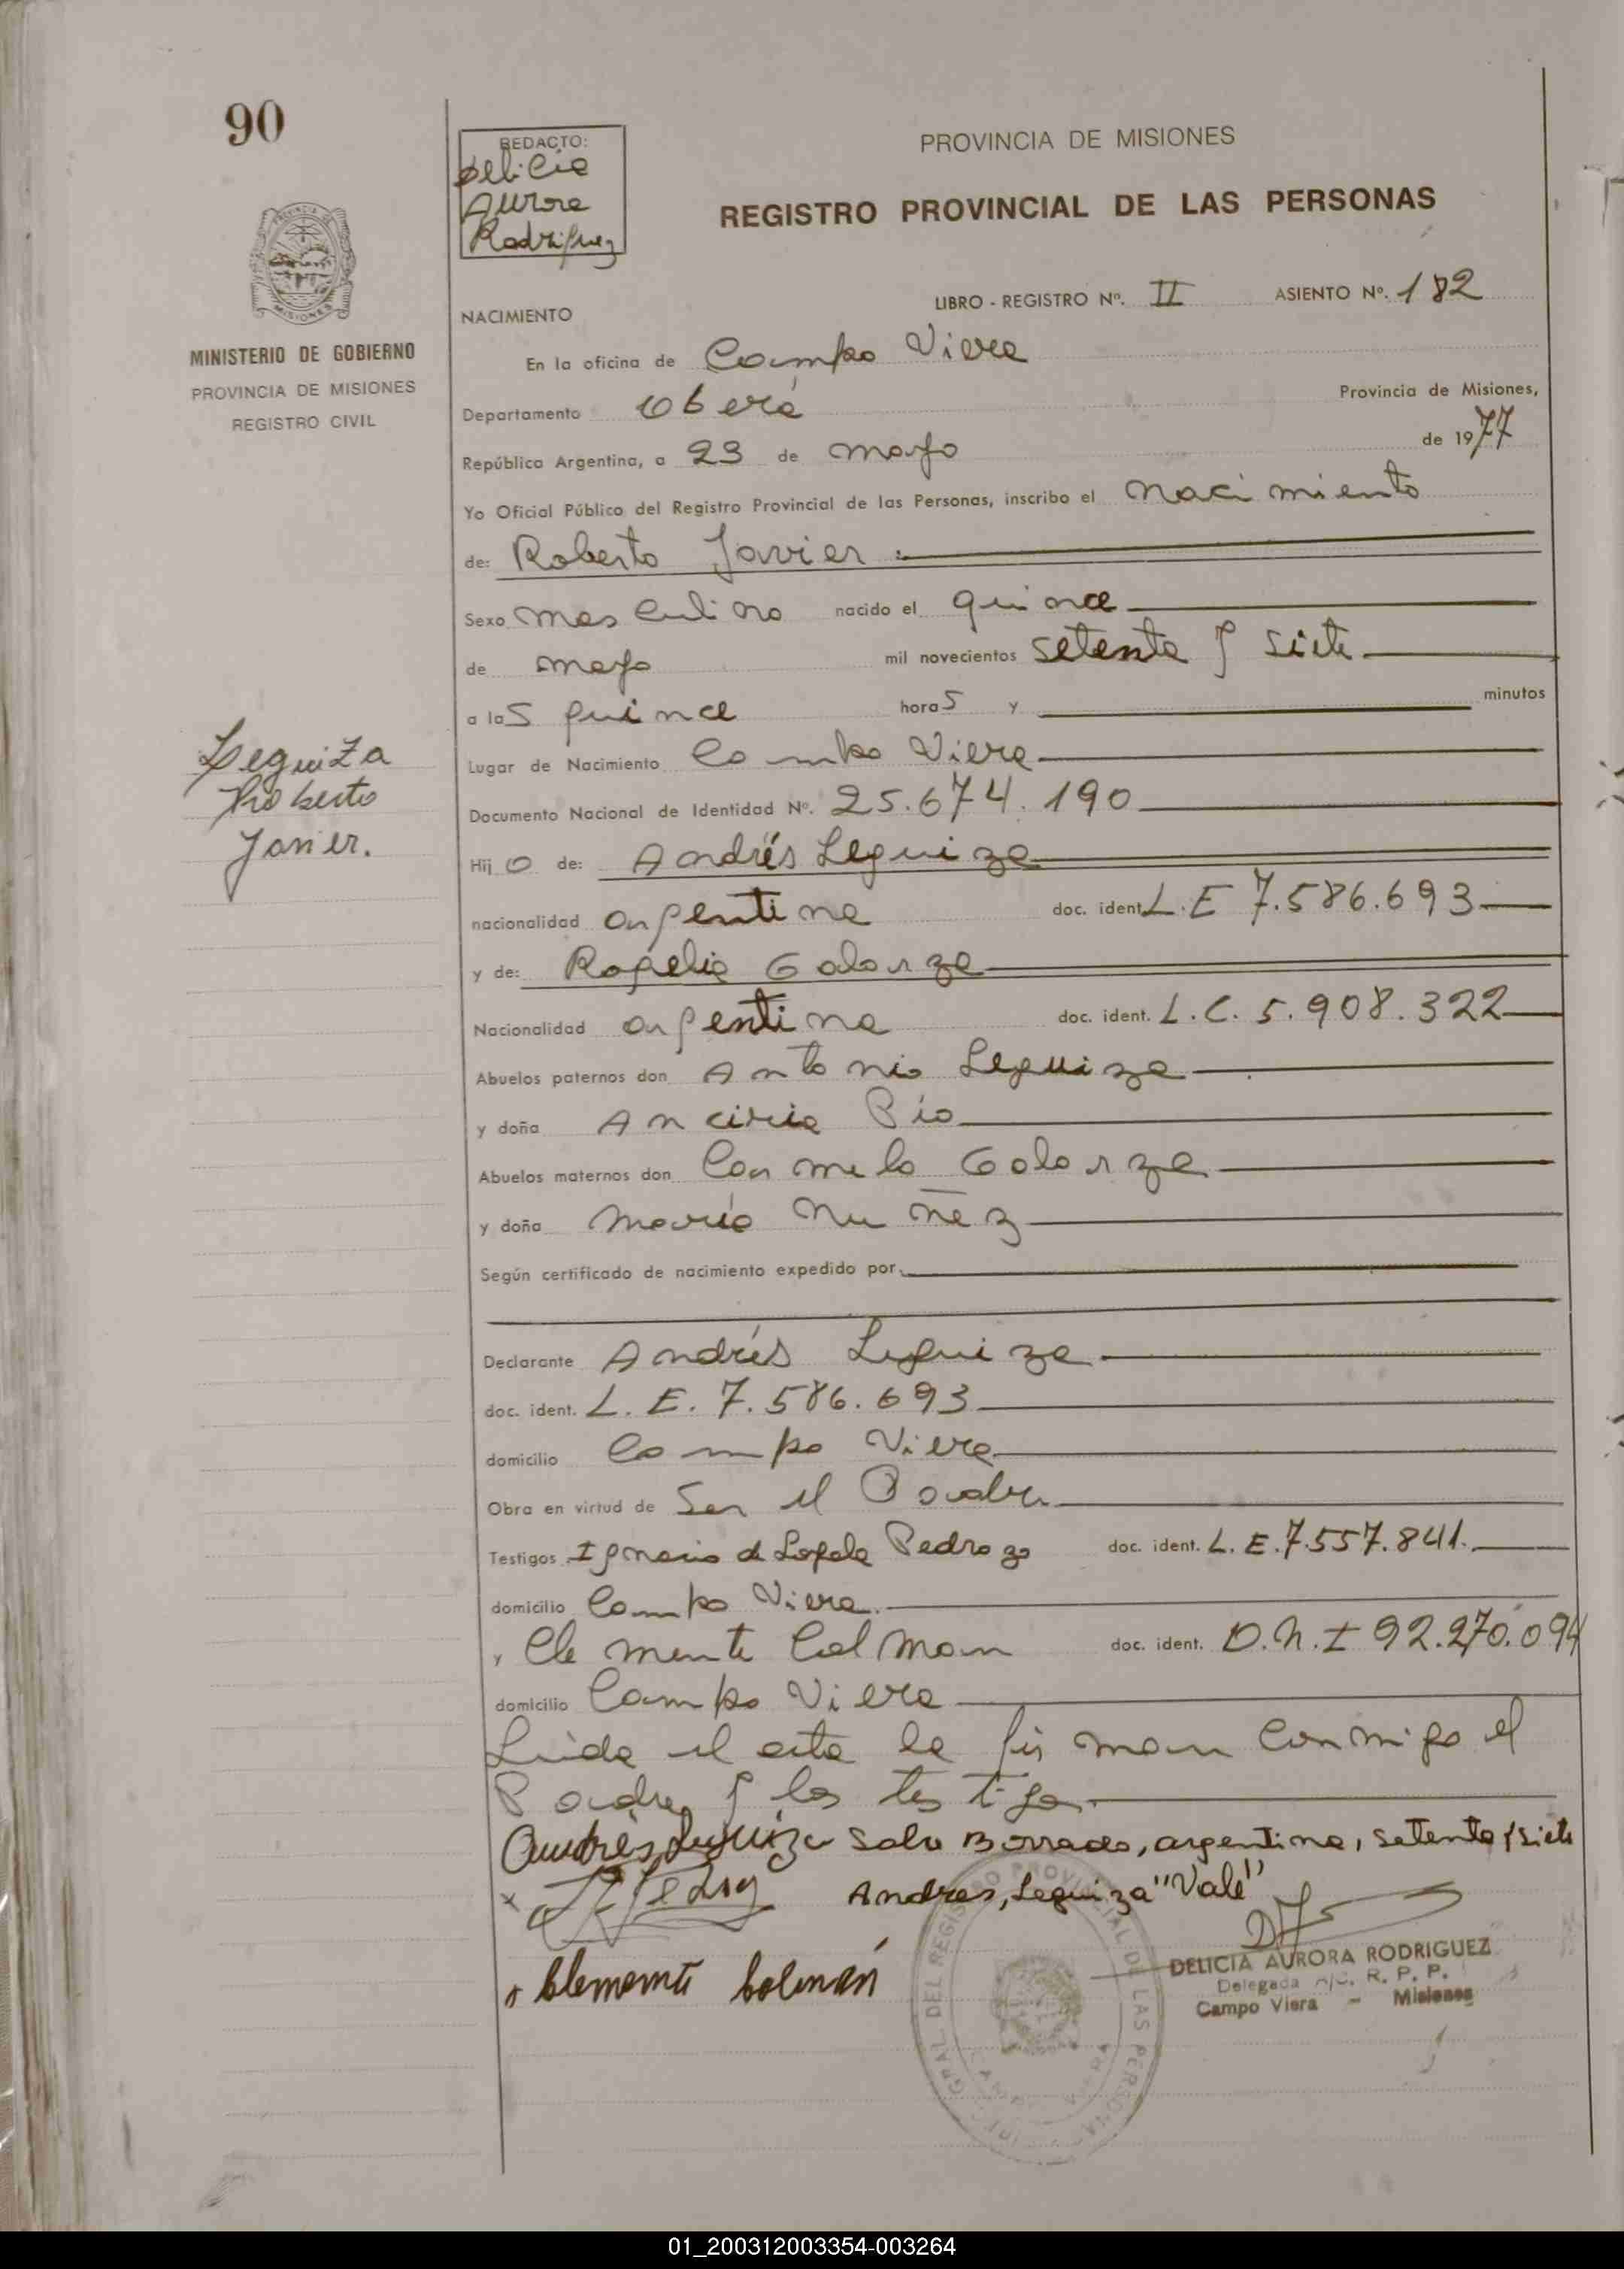 90
REDACTO:
Delicia
Aurora
Rodriguez
PROVINCIA DE MISIONES
REGISTRO PROVINCIAL DE LAS PERSONAS
LIBRO - REGISTRO Nº. II ASIENTO Nº. 182
MISIONES
MINISTERIO DE GOBIERNO
PROVINCIA DE MISIONES
REGISTRO CIVIL
NACIMIENTO
En la oficina de Campo Viera
Departamento Oberá Provincia de Misiones,
República Argentina, a 23 de mayo de 1977
Yo Oficial Público del Registro Provincial de las Personas, inscribo el nacimiento
de: Roberto Javier
Sexo masculino nacido el quince
de mayo mil novecientos setenta y siete
a las quince horas y minutos
Leguiza
Roberto
Javier.
Lugar de Nacimiento Campo Viera
Documento Nacional de Identidad Nº. 25.674.190
Hijo de: Andrés Leguiza
nacionalidad argentina doc. ident. L.E 7.586.693
y de: Rogelia Galarza
Nacionalidad argentina doc. ident. L.C. 5.908.322
Abuelos paternos don Antonio Leguiza
y doña Anciria Pío
Abuelos maternos don Carmelo Galarza
y doña María Nuñez
Según certificado de nacimiento expedido por
Declarante Andrés Leguiza
doc. ident. L. E. 7.586.693
domicilio Campo Viera
Obra en virtud de Ser el Padre
Testigos Ignacio de Loyola Pedrozo doc. ident. L. E. 7.557.841.
domicilio Campo Viera.
y Clemente Colman doc. ident. D.N.I 92.270.094
domicilio Campo Viera
Leida el acta la firman conmigo el
Padre y los testigos.
Andrés Leguiza Salv Borrado, argentina, setenta y siete
Andres, Leguiza "Vale"
x Clemente Colmán
DELICIA AURORA RODRIGUEZ
Delegada A/C. R. P. P.
Campo Viera - Misiones
GRAL DEL REGISTRO PROVINCIAL DE LAS PERSONAS
01_200312003354-003264